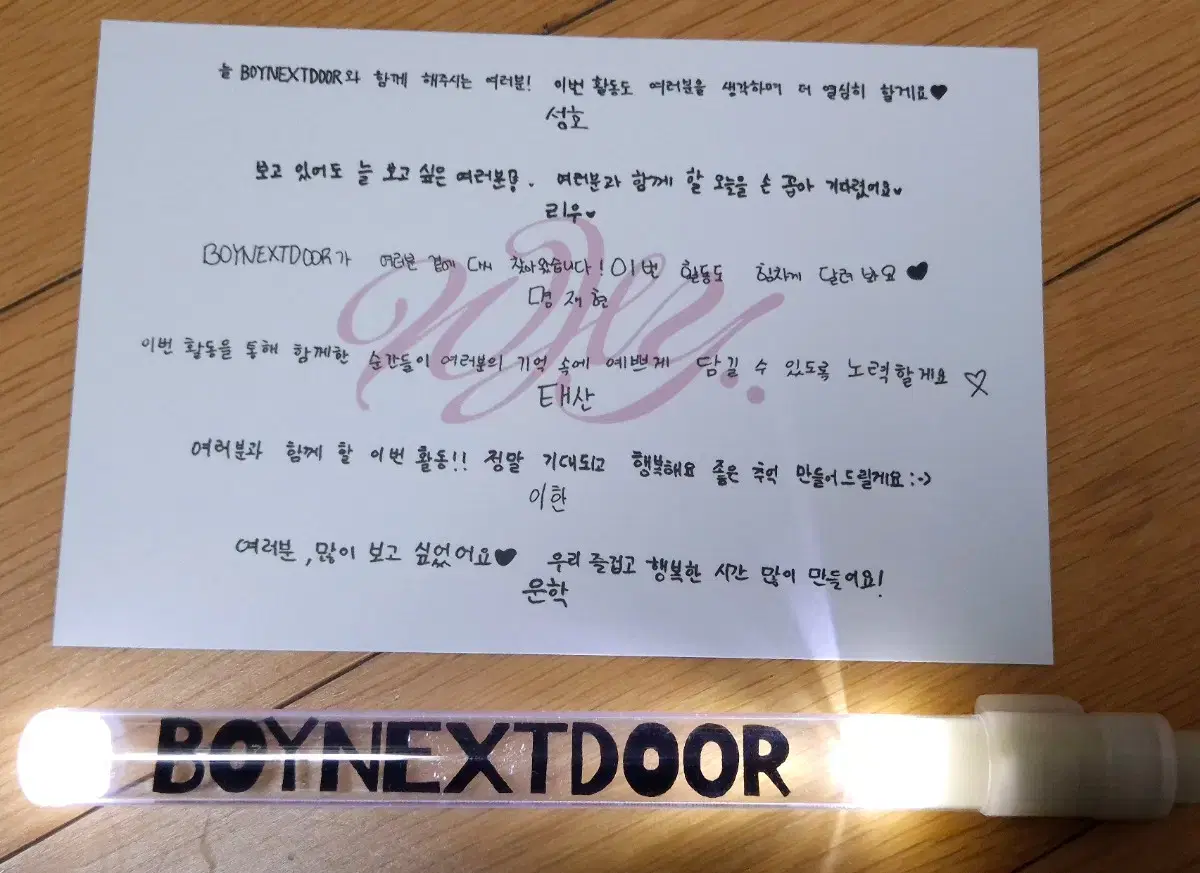 늘 BOYNEXTDOOR와 함께 해주시는 여러분! 이번 활동도 여러분을 생각하며 더 열심히 할게요♥
성호
보고 있어도 늘 보고 싶은 여러분!. 여러분과 함께 할 오늘을 손 꼽아 기다렸어요♥
리우♥
BOYNEXTDOOR가 여러분 곁에 다시 찾아왔습니다! 이번 활동도 힘차게 달려 봐요♥
명재현
이번 활동을 통해 함께한 순간들이 여러분의 기억 속에 예쁘게 담길 수 있도록 노력할게요♡
태산
여러분과 함께 할 이번 활동!! 정말 기대되고 행복해요 좋은 추억 만들어드릴게요:->
이한
여러분, 많이 보고 싶었어요♥ 우리 즐겁고 행복한 시간 많이 만들어요!
운학
WHY..
BOYNEXTDOOR